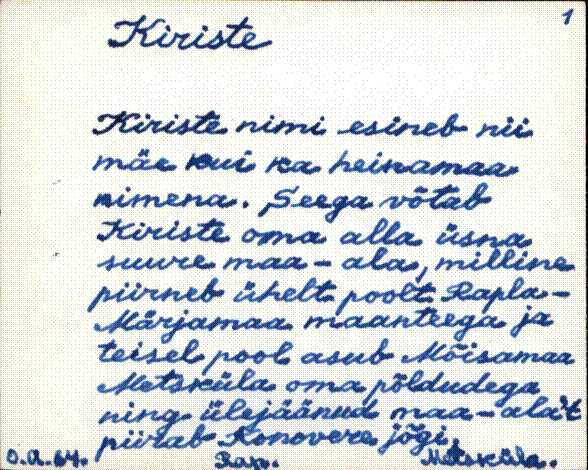 1
Kiriste
Kiriste nimi esineb nii
mäe kui ka heinamaa
nimena. Seega võtab
Kiriste oma alla üsna
suure maa-ala, milline
piirneb ühelt poolt Rapla-
Märjamaa maanteega ja
teisel pool asub Mõisamaa
Metsküla oma põldudega
ning ülejäänud maa-ala't
piirab Konovere jõgi.
O.A.64. Rap. Metsküla.